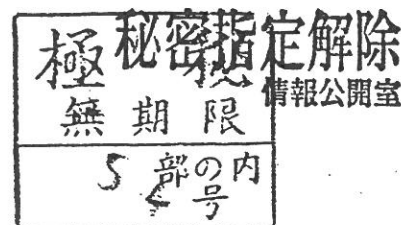 極秘
秘密指定解除
情報公開室
無期限
5部の内
号